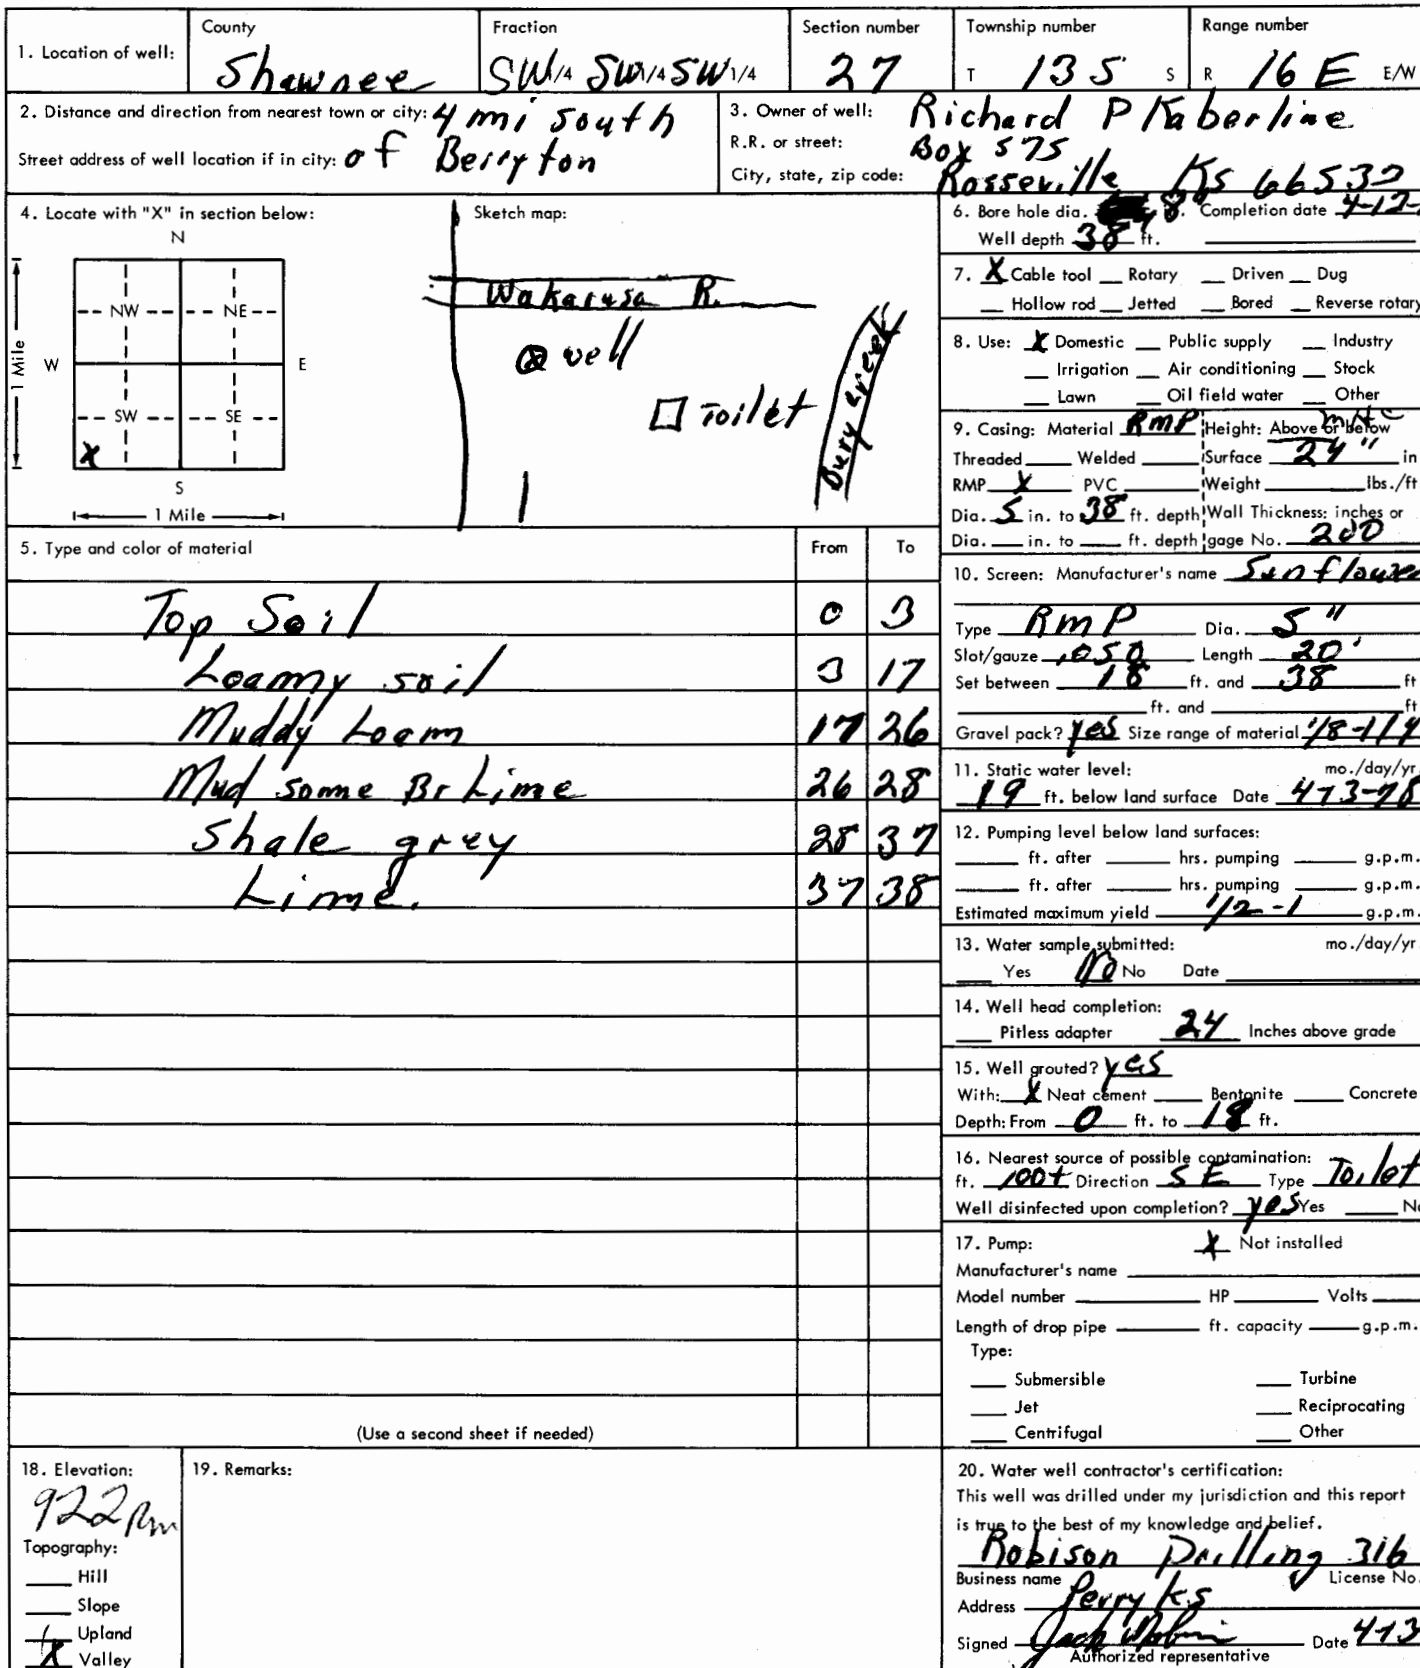 1. Location of well:
County
Shawnee
Fraction
SW 1/4 SW 1/4 SW 1/4
Section number
27
Township number
T 13 S S
Range number
R 16 E E/W
2. Distance and direction from nearest town or city: 4 mi south
Street address of well location if in city: of Berryton
3. Owner of well: Richard P Kaberline
R.R. or street: Box 575
City, state, zip code: Rosseville Ks 66533
4. Locate with "X" in section below:
N
NW NE
W E
1 Mile
SW SE
X
S
1 Mile
Sketch map:
Wakarusa R.
well
Toilet
Bury creek
5. Type and color of material From To
Top Soil 0 3
Loamy soil 3 17
Muddy Loam 17 26
Mud some Br Lime 26 28
Shale grey 28 37
Lime. 37 38
(Use a second sheet if needed)
6. Bore hole dia. 8". Completion date 4-12-
Well depth 38 ft.
7. X Cable tool __ Rotary __ Driven __ Dug
__ Hollow rod __ Jetted __ Bored __ Reverse rotary
8. Use: X Domestic __ Public supply __ Industry
__ Irrigation __ Air conditioning __ Stock
__ Lawn __ Oil field water __ Other
9. Casing: Material RMP Height: Above or below
Threaded __ Welded __ Surface 24" in
RMP X PVC __ Weight __ lbs./ft
Dia. 5 in. to 38 ft. depth Wall Thickness: inches or
Dia. __ in. to __ ft. depth gage No. 200
10. Screen: Manufacturer's name Sunflower
Type RMP Dia. 5"
Slot/gauze .050 Length 20'
Set between 18 ft. and 38 ft
__ ft. and __ ft
Gravel pack? yes Size range of material 1/8-1/4
11. Static water level: mo./day/yr.
19 ft. below land surface Date 4-13-78
12. Pumping level below land surfaces:
__ ft. after __ hrs. pumping __ g.p.m.
__ ft. after __ hrs. pumping __ g.p.m.
Estimated maximum yield 1/2-1 g.p.m.
13. Water sample submitted: mo./day/yr
__ Yes No No Date
14. Well head completion:
__ Pitless adapter 24 Inches above grade
15. Well grouted? yes
With: X Neat cement __ Bentonite __ Concrete
Depth: From 0 ft. to 18 ft.
16. Nearest source of possible contamination:
ft. 100+ Direction SE Type Toilet
Well disinfected upon completion? yes Yes __ No
17. Pump: X Not installed
Manufacturer's name
Model number __ HP __ Volts __
Length of drop pipe __ ft. capacity __ g.p.m.
Type:
__ Submersible __ Turbine
__ Jet __ Reciprocating
__ Centrifugal __ Other
18. Elevation:
922
Topography:
__ Hill
__ Slope
__ Upland
X Valley
19. Remarks:
20. Water well contractor's certification:
This well was drilled under my jurisdiction and this report
is true to the best of my knowledge and belief.
Robison Drilling 316
Business name License No.
Address Perry Ks
Signed Jack Date 4-13
Authorized representative